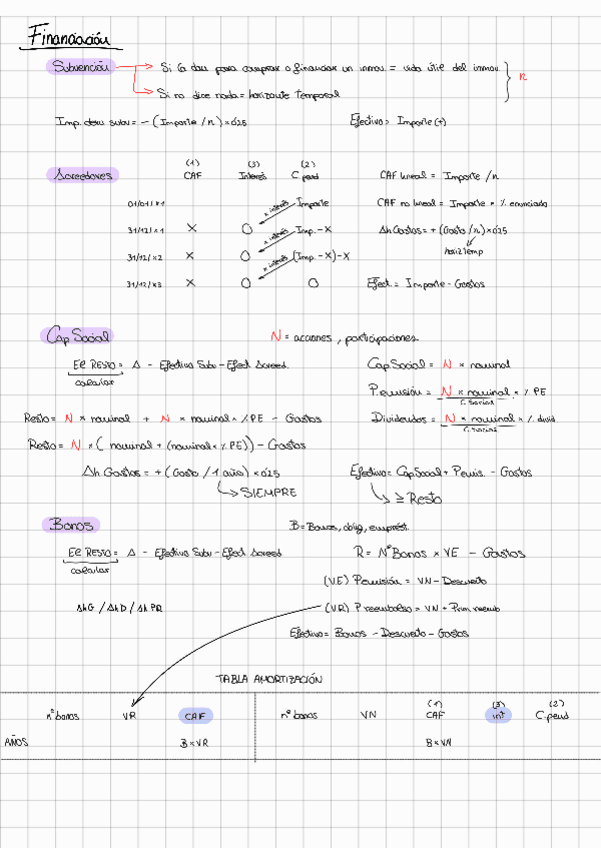 Financiación
Subvención → Si la dan para comprar o financiar un inmov = vida útil del inmov. } n
Si no dice nada = horizonte temporal
Imp. deriv subv = - (Importe / n) × 0'25 Efectivo = Importe (+)
(1) (3) (2)
Acreedores CAF Interés C pend CAF lineal = Importe / n
01/01/x1 Importe CAF no lineal = Importe × % enunciado
x interés
31/12/x1 X O Imp. - X Δh Gastos = + (Gasto / n) × 0'25
x interés horiz temp
31/12/x2 X O (Imp. - X) - X
x interés
31/12/x3 X O O Efect. = Importe - Gastos
Cap Social N = acciones, participaciones
El RESTO = Δ - Efectivo Subv - Efect Acreed. Cap Social = N × nominal
calcular
P.emisión = N × nominal × % PE
C. Social
Resto = N × nominal + N × nominal × % PE - Gastos Dividendos = N × nominal × % divid
C. Social
Resto = N × ( nominal + (nominal × % PE)) - Gastos
Δh Gastos = + ( Gasto / 1 año) × 0'25 Efectivo = Cap Social + P.emis. - Gastos
↳ SIEMPRE ↳ ≥ Resto
Bonos B = Bonos, oblig, emprést.
El RESTO = Δ - Efectivo Subv - Efect Acreed R = Nº Bonos × VE - Gastos
calcular
(VE) P.emisión = VN - Descuento
ΔhG / ΔhD / Δh PR (VR) P reembolso = VN + Prim reemb
Efectivo = Bonos - Descuento - Gastos
TABLA AMORTIZACIÓN
(1) (3) (2)
nº bonos VR CAF nº bonos VN CAF intº C. pend
AÑOS B × VR B × VN